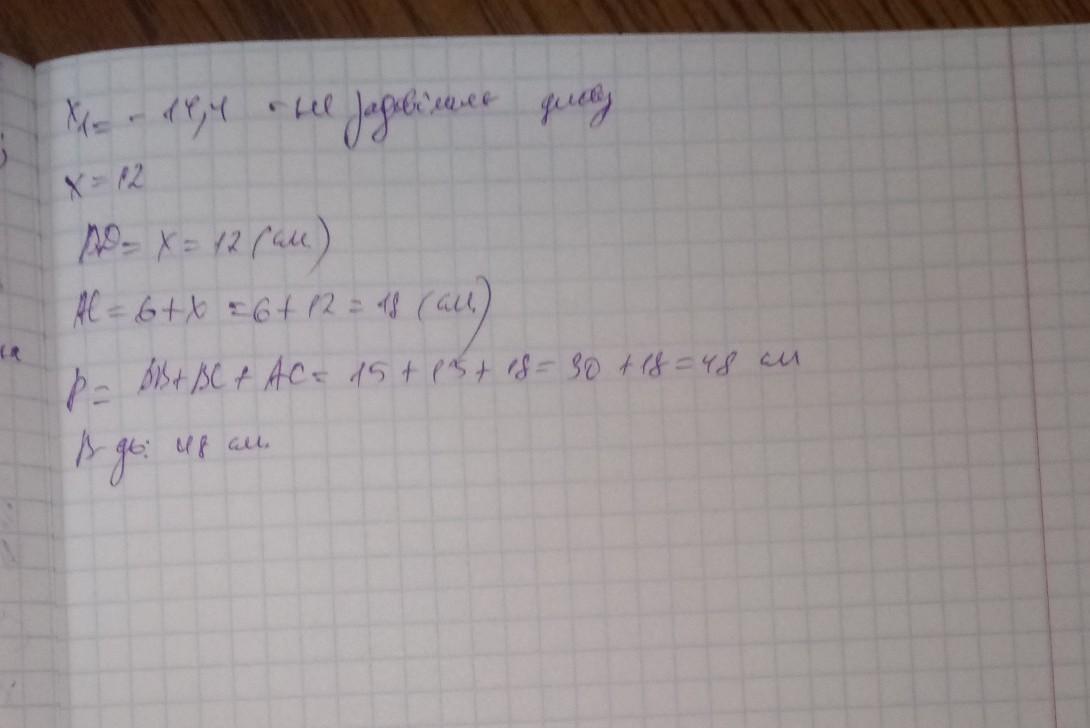 x₁ = - 14,4 - не задовільняє умову
x = 12
AD = x = 12 (см)
AC = 6 + x = 6 + 12 = 18 (см)
P = AB + BC + AC = 15 + 15 + 18 = 30 + 18 = 48 см
В-дь: 48 см.